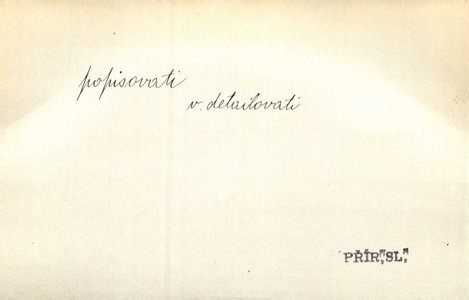 popisovati
v. detailovati
PŘÍR."SL."